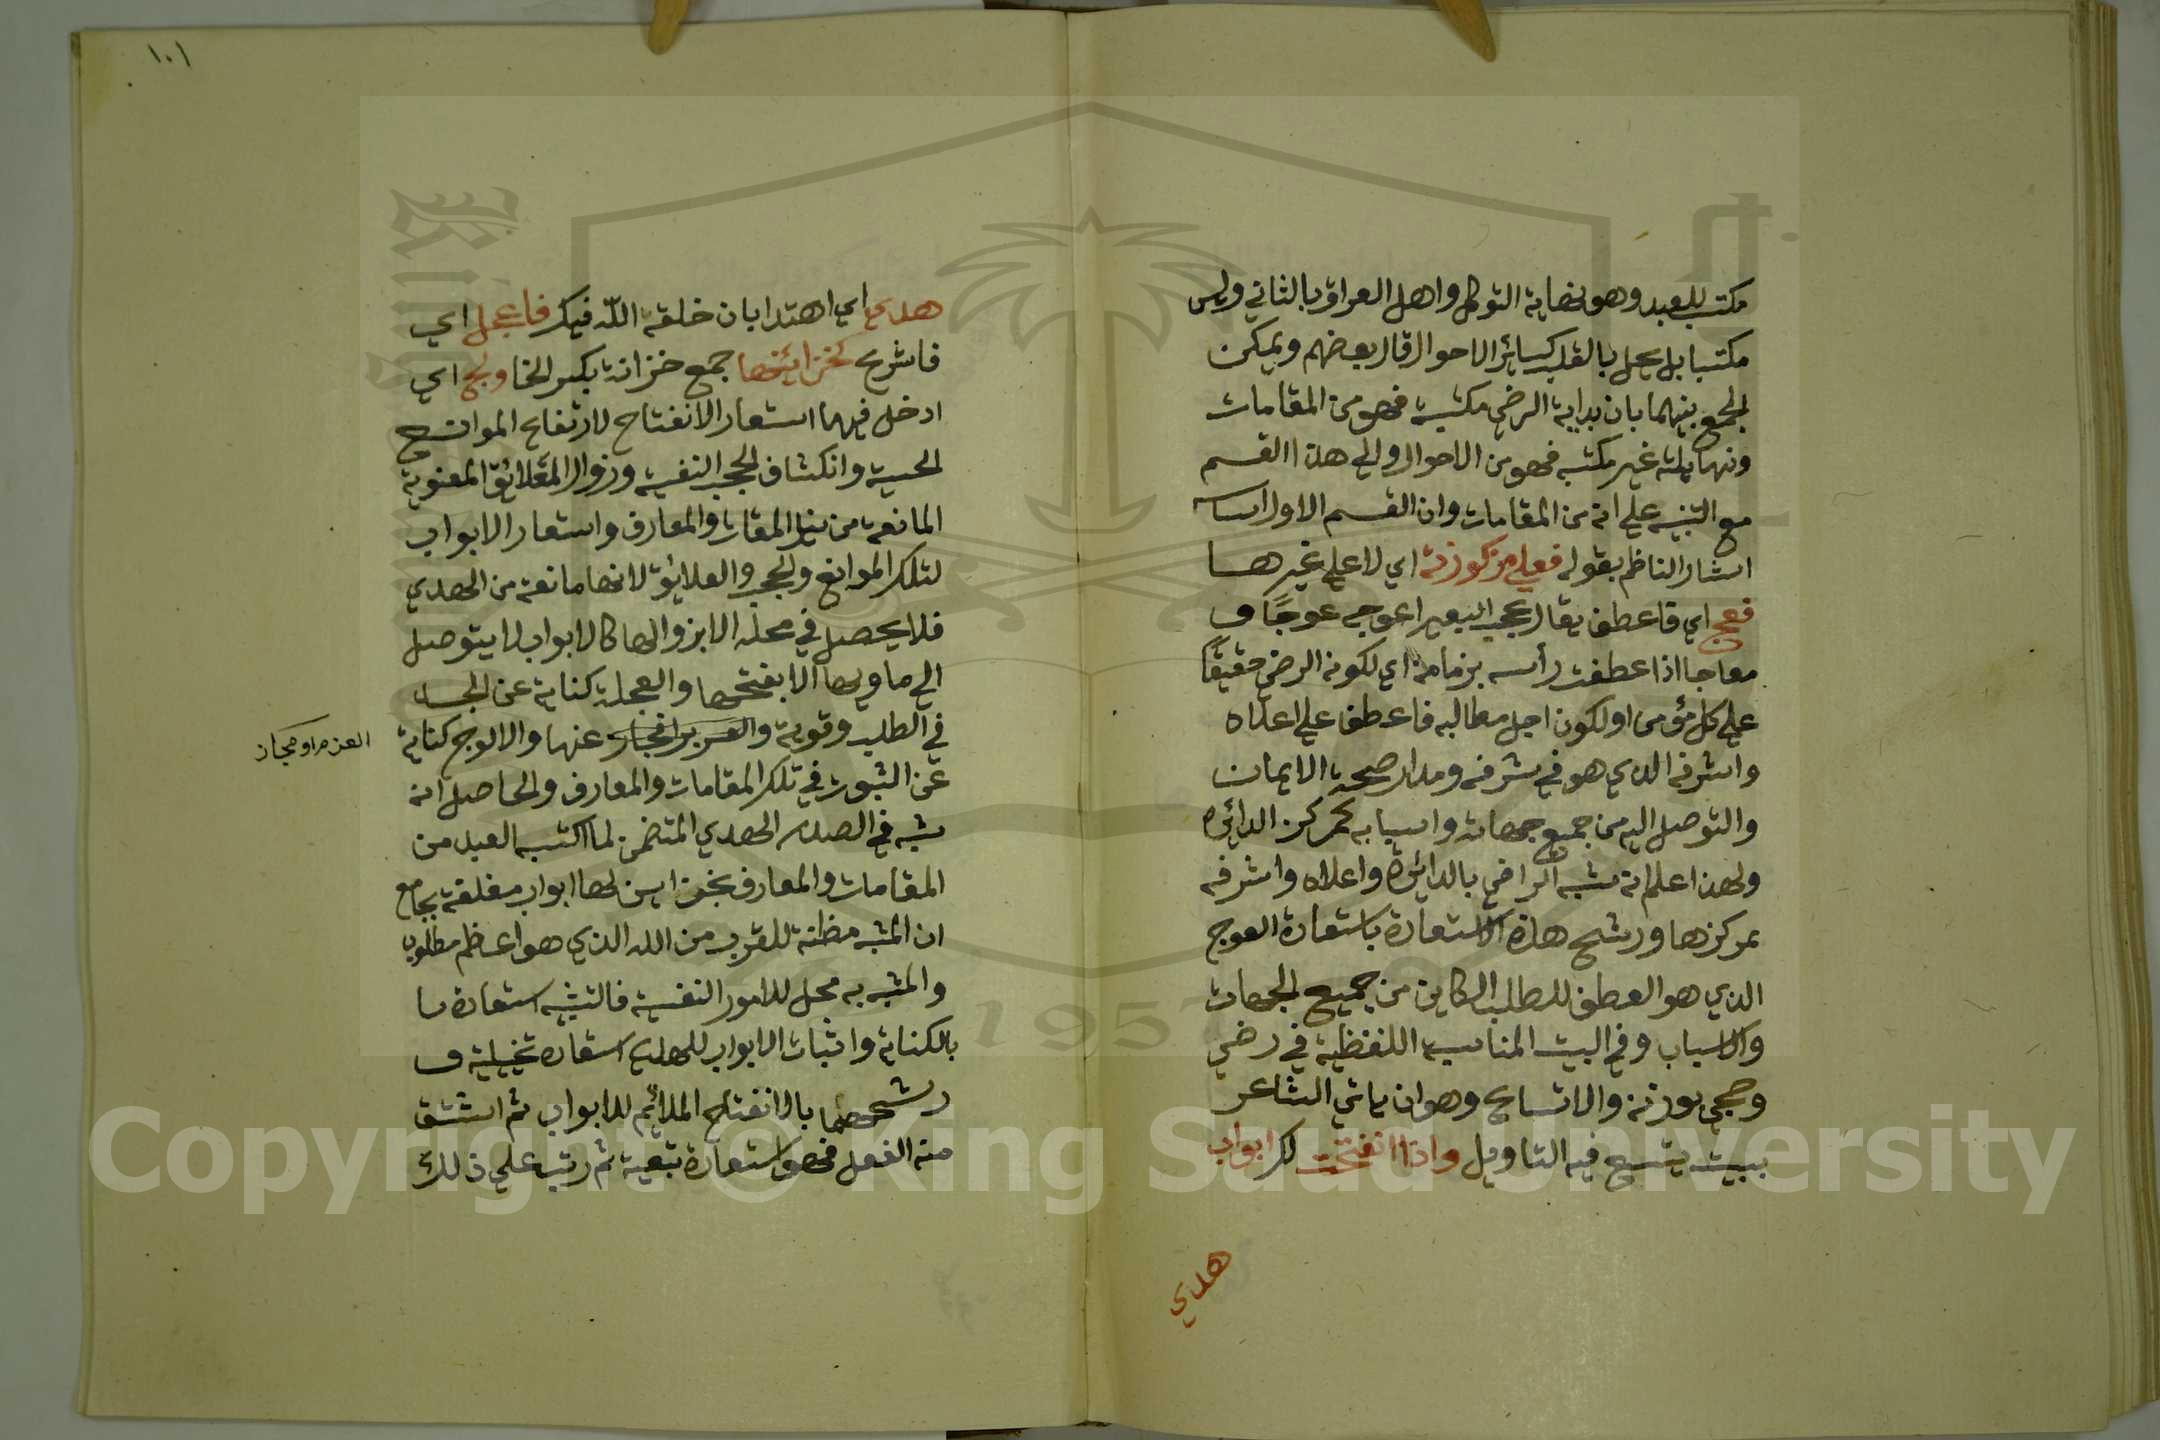 مكتسب للعبد وهو نهاية التوكل واهل العراق بالثاني وليس
مكتسبا بل يحل بالقلب كسائر الاحوال قال بعضهم ويمكن
الجمع بينهما بان بداية الرضى مكتسبة فهو من المقامات
ونهايته غير مكتسبه فهو من الاحوال والي هذا القسم
مع التنبيه علي انه من المقامات وان القسم الاول اساسه
اشار الناظم بقوله فعلي مركوزته اي لا علي غيرها
فعج اي فاعطف يقال عجب البعير اعوجه عوجًا و
معاجا اذا عطفت رأسه بزمامه اي لكونه الرضي حقيقًا
علي كل مؤمن او لكونه اجل مطالبه فاعطف علي اعلاه
واشرفه الذي هو في شرفه ومدار صحة الايمان
والتوصل اليه من جميع جهاته واسبابه كمركز الدائره
ولهذا علم انه شبه الراضي بالدائرة واعلاه واشرفه
بمركزها ورشح هذه الاستعارة باستعارة العوج
الذي هو العطف للطلب الكاين من جميع الجهات
والاسباب وفي البيت المناسبة اللفظية في رضي
وحجي بوزنه والاتساع وهو ان ياتي الشاعر
ببيت يتسع فيه التاويل واذا انفتحت لك ابواب
هدي
١٠١
هدي اي اهتدا بان خلقه الله فيك فاعجل اي
فاسرع لخزائنها جمع خزانة بكسر الخا ولج اي
ادخل فيها استعار الانفتاح لارتفاع الموانع
الحسية وانكشاف الحجب النفسيه وزوال العلائق المعنوية
المانعة من نيل المقات والمعارف واستعار الابواب
لتلك الموانع والحجب والعلايق لانها مانعة من الهدي
فلا يحصل في محله الا بزوالها كالابواب لا يتوصل
الي ما وليها الا بفتحها والعجلة كناية عن الجد
في الطلب وقوية عنها والالوج كناية
العزم او مجاز
عن الثبوت في تلك المقامات والمعارف والحاصل انه
شبه في الصدر الهدي المتضمن لما اكتسبه العبد من
المقامات والمعارف بخزاين لها ابواب مغلقة بجامع
ان المشبه مظنة للقرب من الله الذي هو اعظم مطلوب
والمشبه به محل للامور النفسية فالتشبيه استعارة
بالكناية واثبات الابواب للهدي استعاره تخيلية و
رشحها بالانفتاح الملائم للابواب ثم اشتق
منه الفعل فهو استعارة تبعية ثم رتب علي ذلك
Copyright © King Saud University
1957